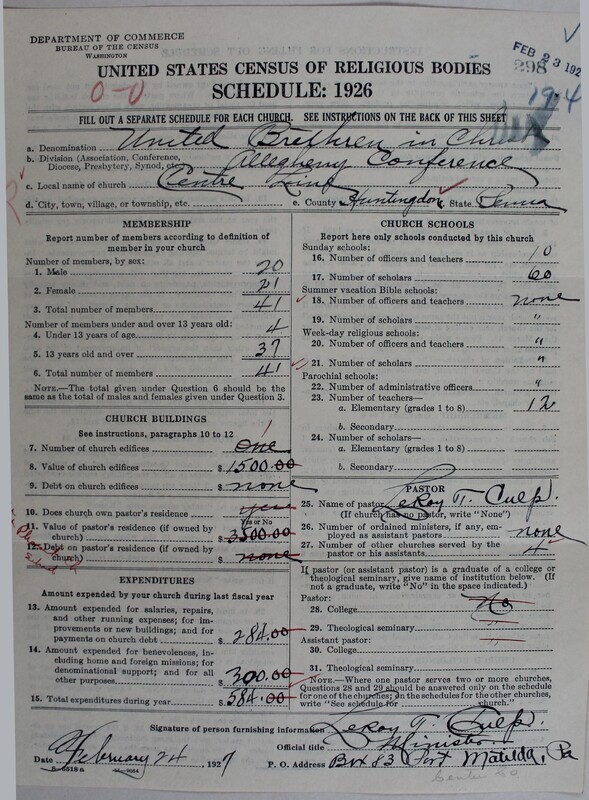 DEPARTMENT OF COMMERCE
BUREAU OF THE CENSUS
WASHINGTON
FEB 23 192
298
UNITED STATES CENSUS OF RELIGIOUS BODIES
0-0
SCHEDULE: 1926
FILL OUT A SEPARATE SCHEDULE FOR EACH CHURCH. SEE INSTRUCTIONS ON THE BACK OF THIS SHEET
a. Denomination United Brethren in Christ
b. Division (Association, Conference, Diocese, Presbytery, Synod, etc.) Allegheny Conference
c. Local name of church Centre Line
d. City, town, village, or township, etc. e. County Huntingdon State Penna
MEMBERSHIP
Report number of members according to definition of member in your church
Number of members, by sex:
1. Male 20
2. Female 21
3. Total number of members 41
Number of members under and over 13 years old:
4. Under 13 years of age 4
5. 13 years old and over 37
6. Total number of members 41
NOTE.—The total given under Question 6 should be the same as the total of males and females given under Question 3.
CHURCH BUILDINGS
See instructions, paragraphs 10 to 12
7. Number of church edifices one
8. Value of church edifices $ 1500.00
9. Debt on church edifices $ none
10. Does church own pastor's residence yes
Yes or No
11. Value of pastor's residence (if owned by church) $ 3500.00
12. Debt on pastor's residence (if owned by church) $ none
EXPENDITURES
Amount expended by your church during last fiscal year
13. Amount expended for salaries, repairs, and other running expenses; for improvements or new buildings; and for payments on church debt $ 284.00
14. Amount expended for benevolences, including home and foreign missions; for denominational support; and for all other purposes $ 300.00
15. Total expenditures during year $ 584.00
CHURCH SCHOOLS
Report here only schools conducted by this church
Sunday schools:
16. Number of officers and teachers 10
17. Number of scholars 60
Summer vacation Bible schools:
18. Number of officers and teachers none
19. Number of scholars "
Week-day religious schools:
20. Number of officers and teachers "
21. Number of scholars "
Parochial schools:
22. Number of administrative officers "
23. Number of teachers—
a. Elementary (grades 1 to 8) 12
b. Secondary
24. Number of scholars—
a. Elementary (grades 1 to 8)
b. Secondary
PASTOR
25. Name of pastor LeRoy T. Culp.
(If church has no pastor, write "None")
26. Number of ordained ministers, if any, employed as assistant pastors none
27. Number of other churches served by the pastor or his assistants 4
If pastor (or assistant pastor) is a graduate of a college or theological seminary, give name of institution below. (If not a graduate, write "No" in the space indicated.)
Pastor:
28. College No
29. Theological seminary "
Assistant pastor:
30. College
31. Theological seminary
NOTE.—Where one pastor serves two or more churches, Questions 28 and 29 should be answered only on the schedule for one of the churches; on the schedules for the other churches write "See schedule for church."
Signature of person furnishing information LeRoy T. Culp.
Official title Minister
Date February 24, 1927 P. O. Address Box 83 Port Matilda, Pa
8-5518a
Center Co